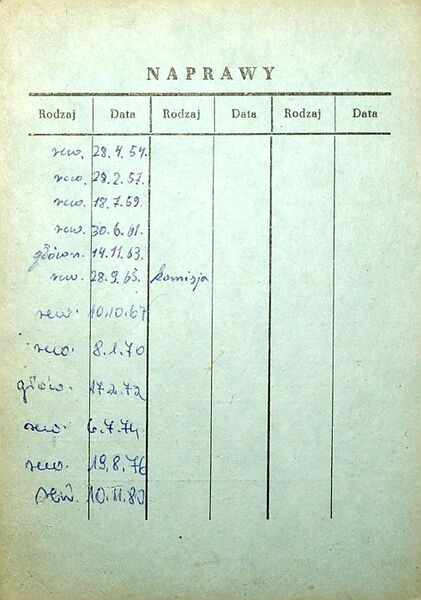 NAPRAWY
Rodzaj Data Rodzaj Data Rodzaj Data
rew. 28.4.54.
rew. 28.2.57.
rew. 18.7.59.
rew. 30.6.61.
główn. 14.11.63.
rew. 28.9.65. komisja
rew. 10.10.67
rew. 8.1.70
główn. 17.2.72
rew. 6.7.74
rew. 19.8.76
rew. 10.11.80